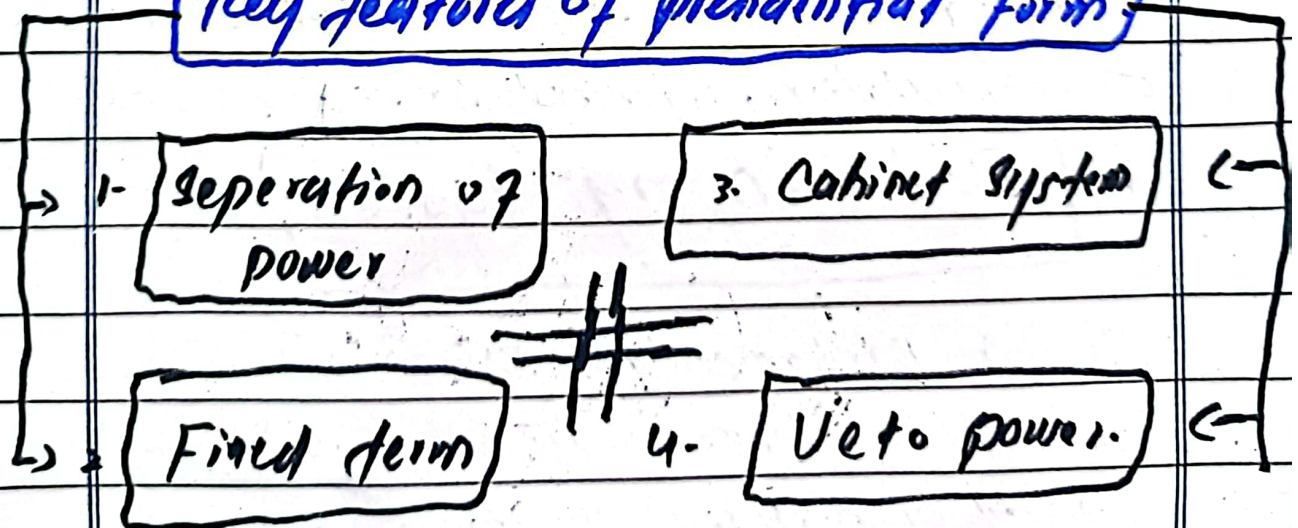 Key feature of presidential form
1- Seperation of
power
3. Cabinet System
2 Fixed term
4. Veto power.